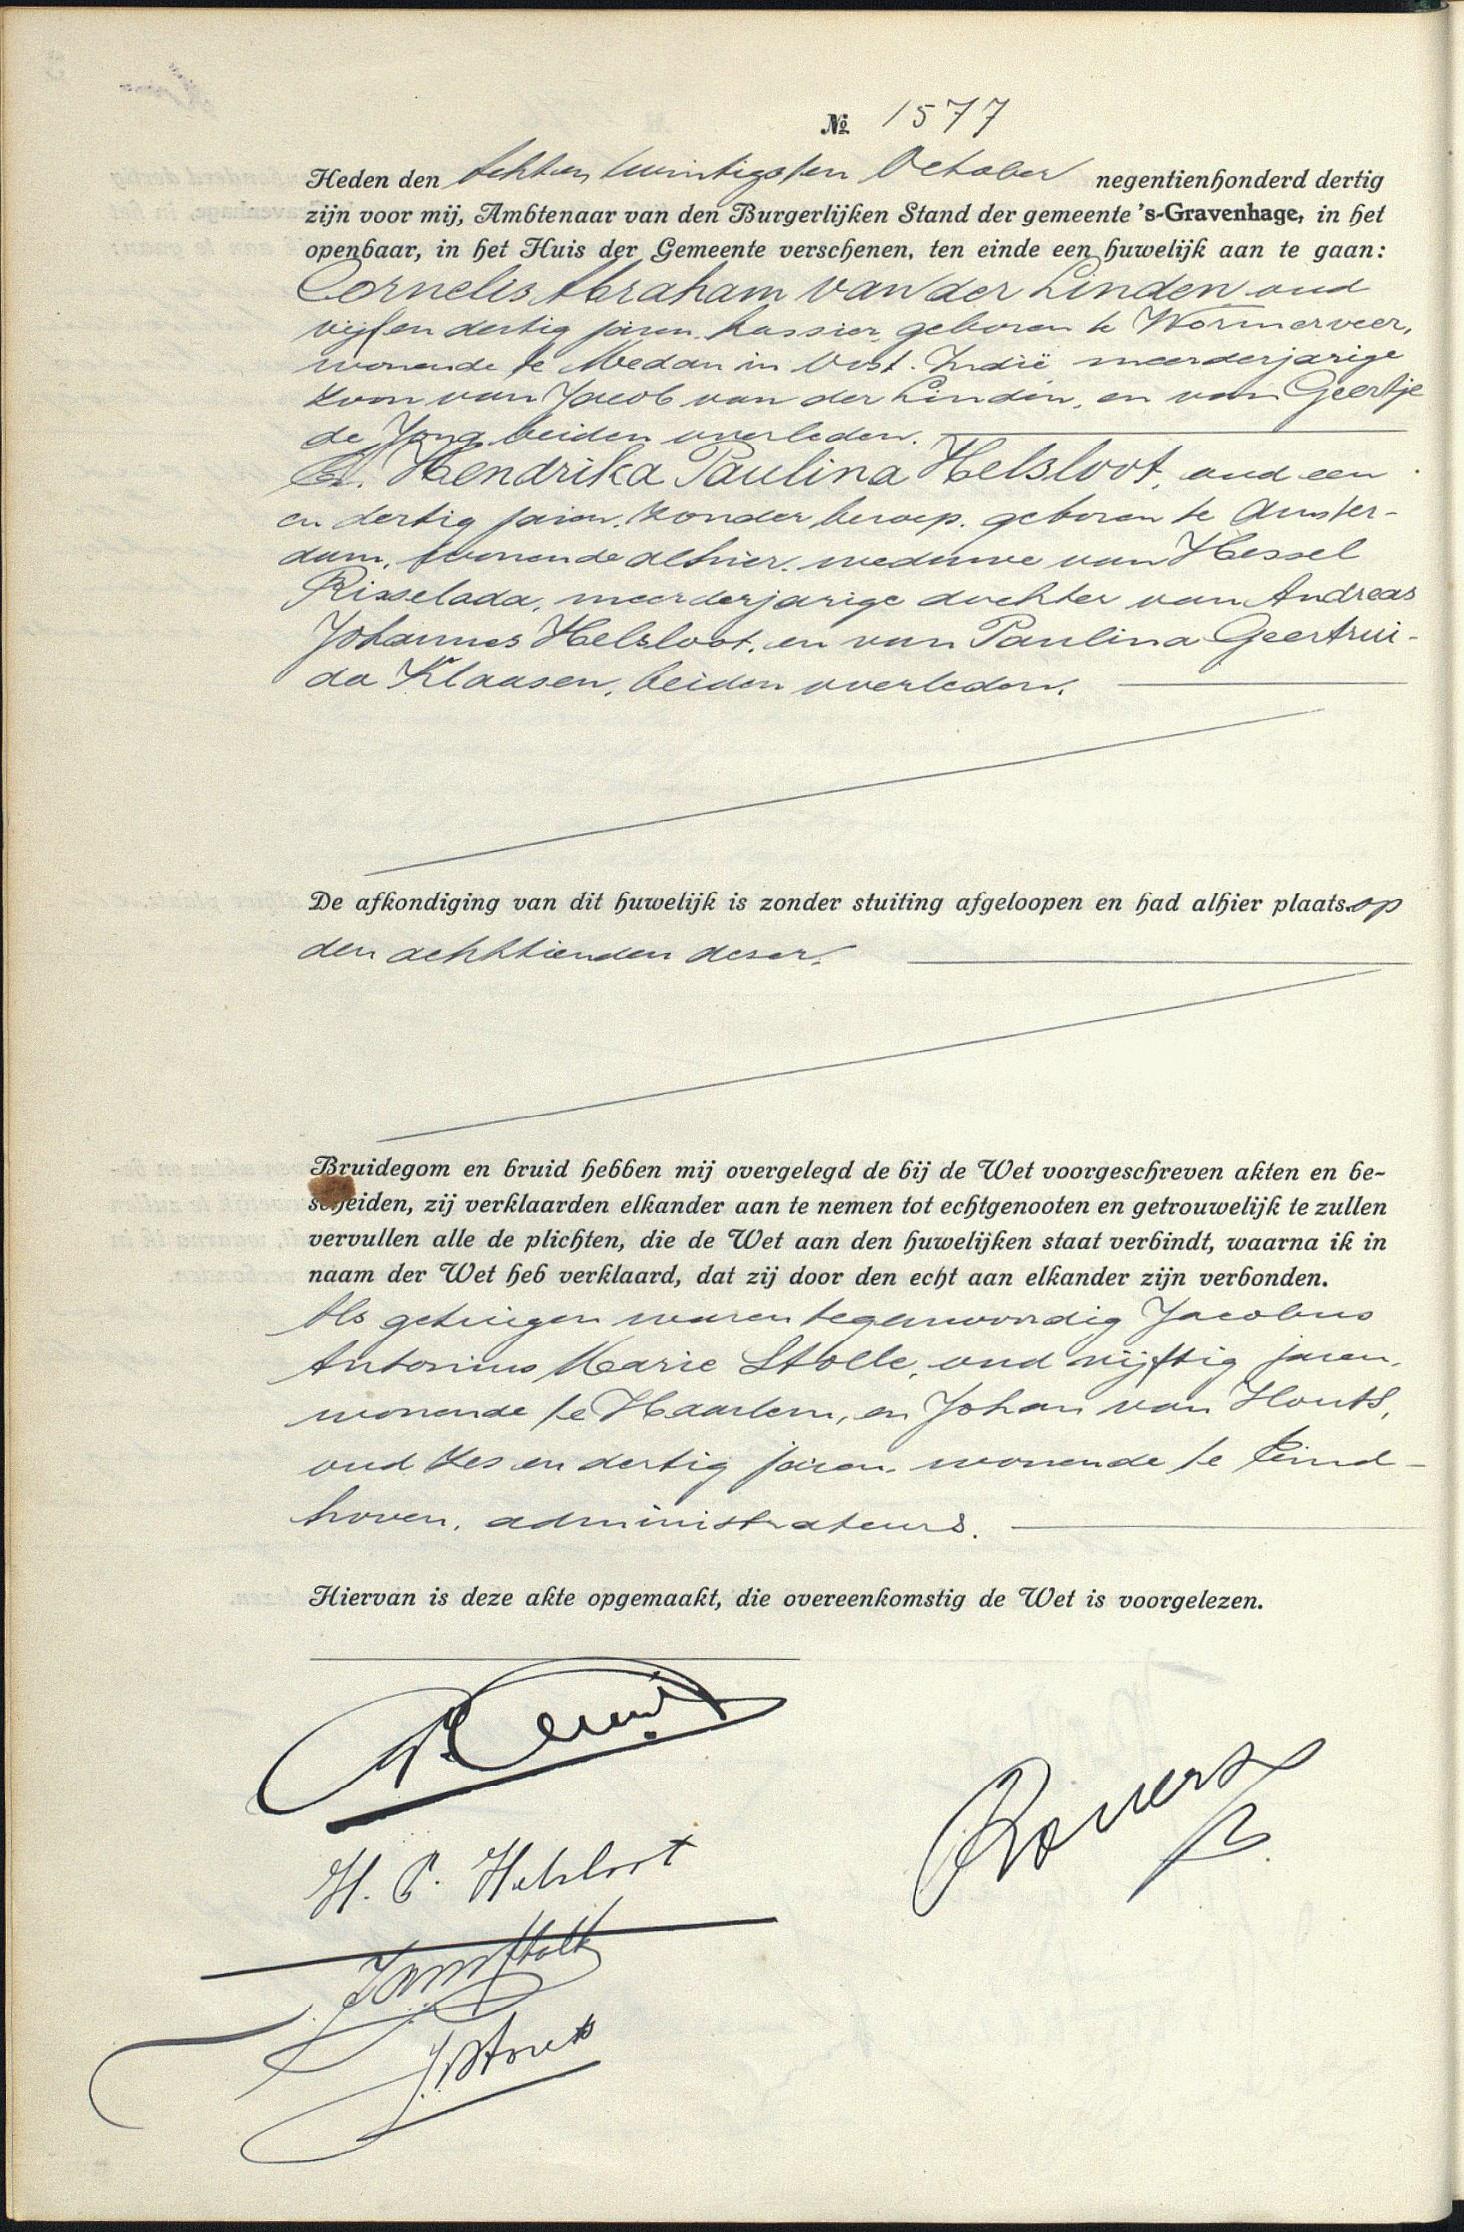 № 1577
Heden den Acht en twintigsten October negentienhonderd dertig
zijn voor mij, Ambtenaar van den Burgerlijken Stand der gemeente 's-Gravenhage, in het
openbaar, in het Huis der Gemeente verschenen, ten einde een huwelijk aan te gaan:
Cornelis Abraham van der Linden oud
vijf en dertig jaren, kassier, geboren te Wormerveer,
wonende te Medan in Oost-Indië meerderjarige
zoon van Jacob van der Linden, en van Geertje
de Jong beiden overleden.
En Hendrika Paulina Helsloot, oud een
en dertig jaren, zonder beroep, geboren te Amster-
dam, wonende alhier, weduwe van Hessel
Risselada, meerderjarige dochter van Andreas
Johannes Helsloot, en van Paulina Geertrui-
da Klaasen, beiden overleden.
De afkondiging van dit huwelijk is zonder stuiting afgeloopen en had alhier plaats op
den achttienden dezer.
Bruidegom en bruid hebben mij overgelegd de bij de Wet voorgeschreven akten en be-
scheiden, zij verklaarden elkander aan te nemen tot echtgenooten en getrouwelijk te zullen
vervullen alle de plichten, die de Wet aan den huwelijken staat verbindt, waarna ik in
naam der Wet heb verklaard, dat zij door den echt aan elkander zijn verbonden.
Als getuigen waren tegenwoordig Jacobus
Antonius Marie Stolle, oud vijftig jaren,
wonende te Haarlem, en Johan van Houts,
oud zes en dertig jaren, wonende te Eind-
hoven, administrateurs.
Hiervan is deze akte opgemaakt, die overeenkomstig de Wet is voorgelezen.
H. P. Helsloot
Romers